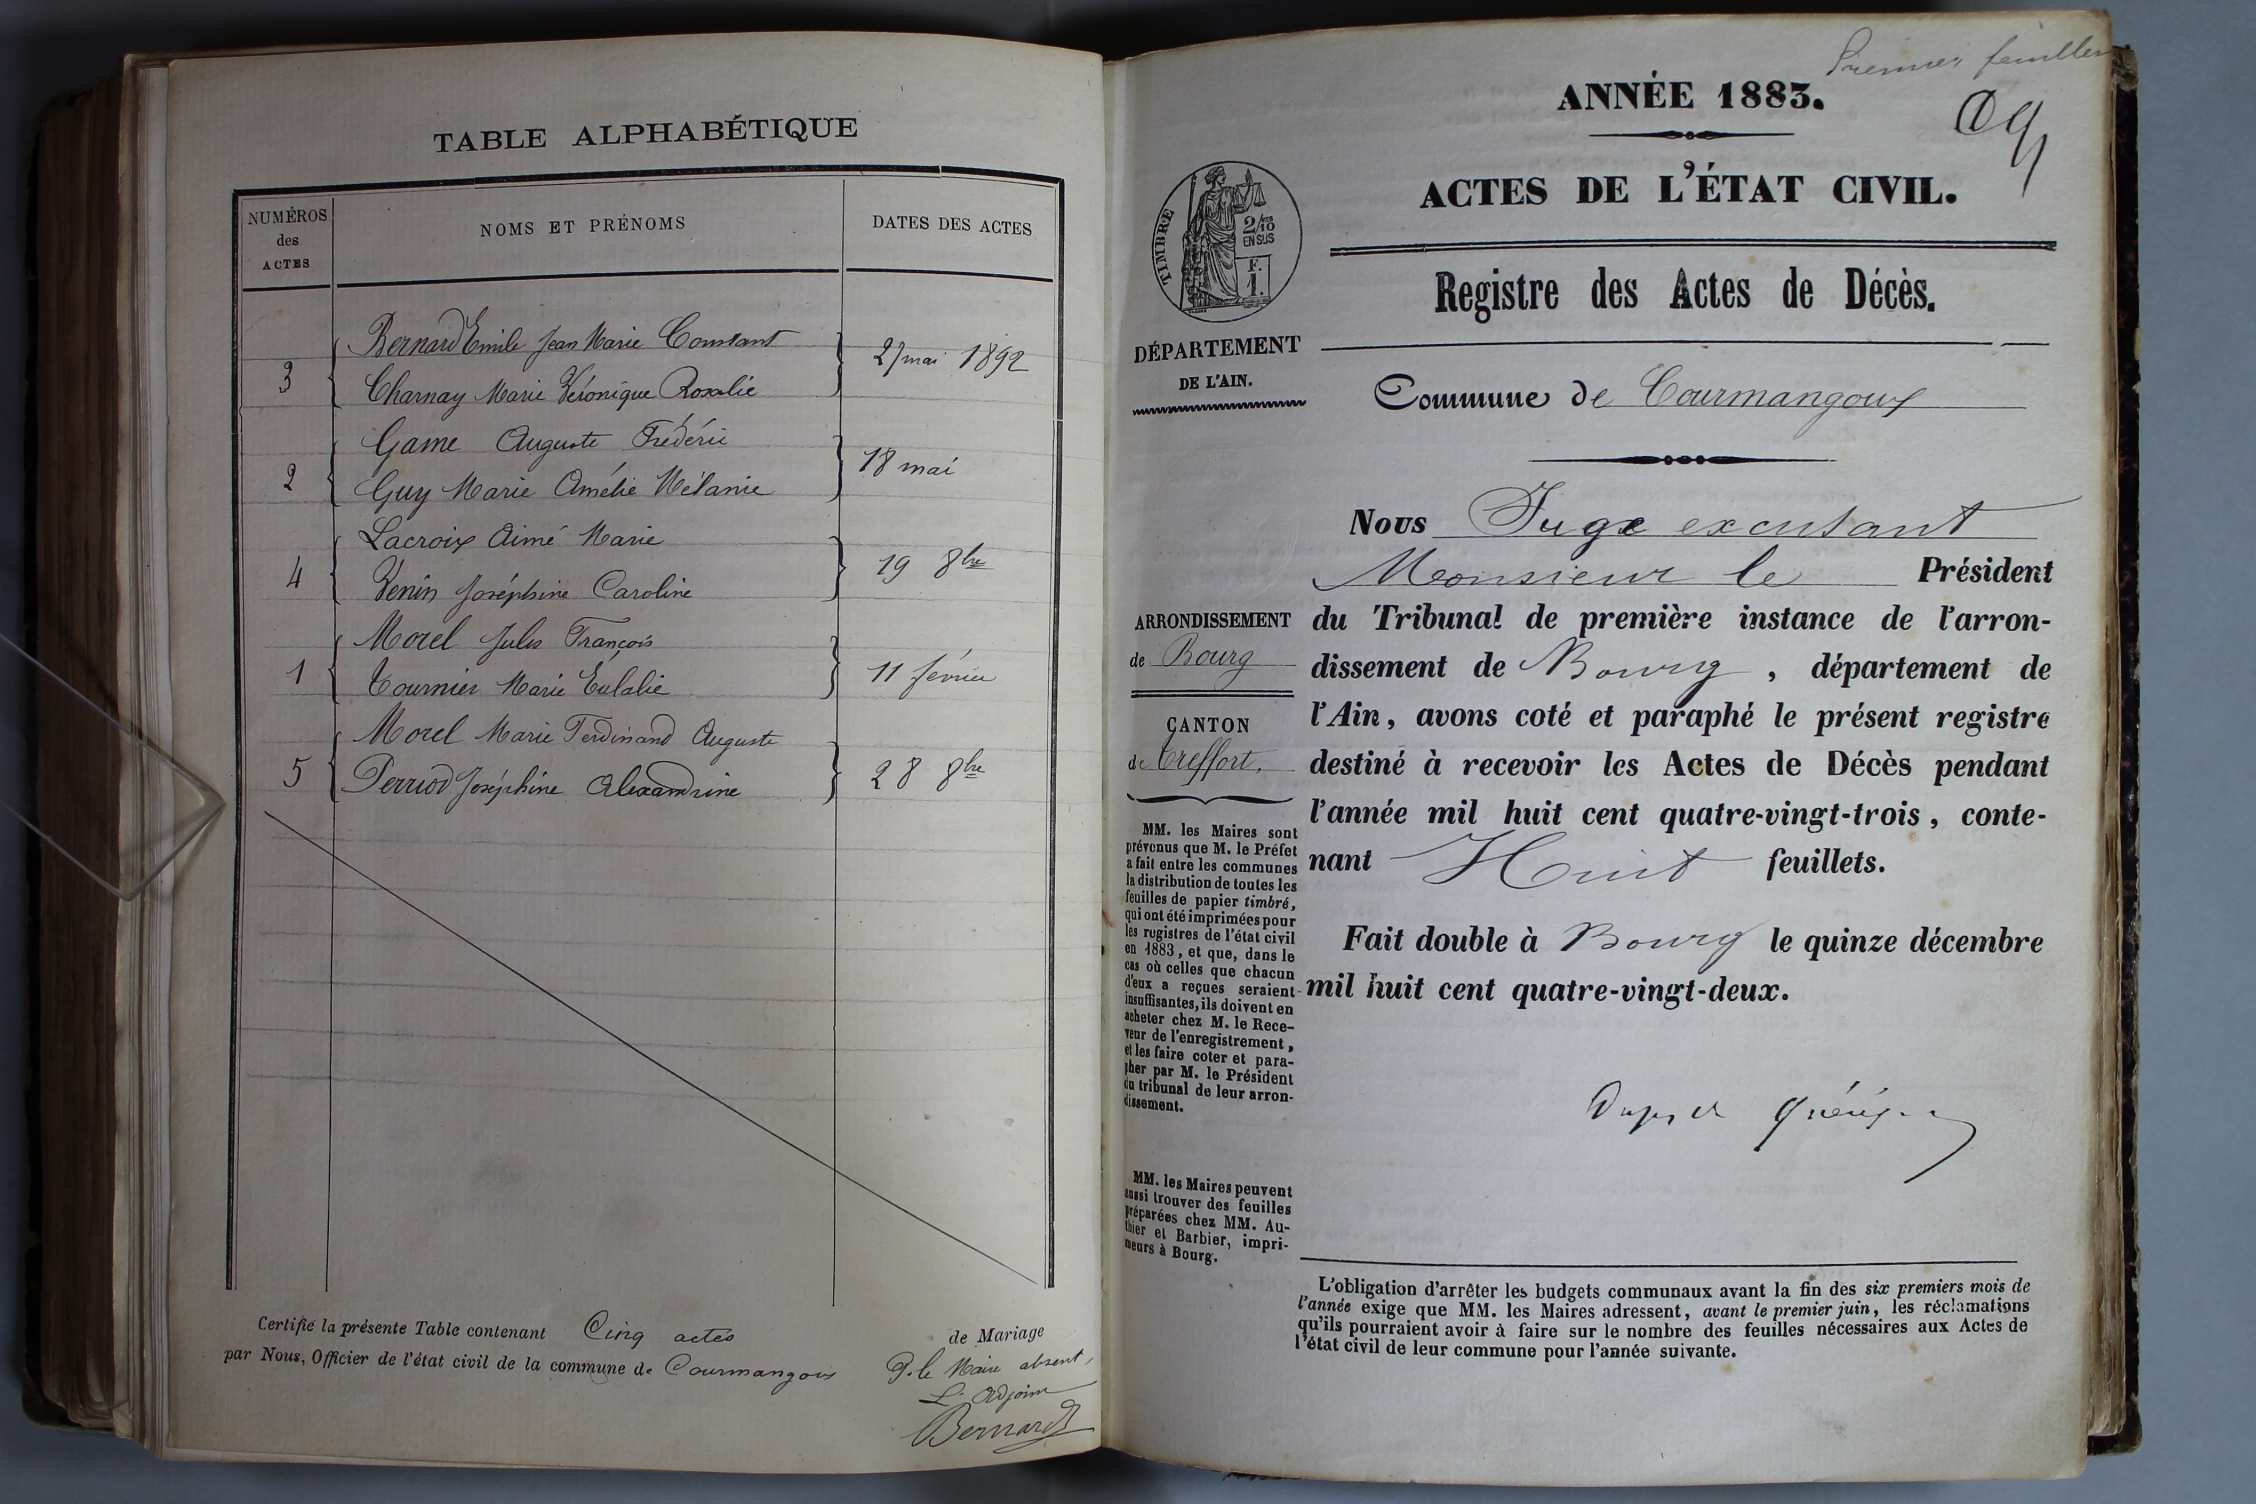 TABLE ALPHABÉTIQUE
NUMÉROS des ACTES
NOMS ET PRÉNOMS
DATES DES ACTES
Bernard Emile Jean Marie Constant
3 27 mai 1892
Charnay Marie Véronique Rosalie
Game Auguste Frédéric
2 18 mai
Guy Marie Amélie Mélanie
Lacroix Aimé Marie
4 19 8bre
Venin Joséphine Caroline
Morel Jules François
1 11 février
Tournier Marie Eulalie
Morel Marie Ferdinand Auguste
5 28 8bre
Perriod Joséphine Alexandrine
Certifié la présente Table contenant Cinq actes de Mariage
par Nous, Officier de l'état civil de la commune de Courmangoux
P. le Maire absent,
L'Adjoint
Bernard
Premier feuillet
ANNÉE 1883.
ACTES DE L'ÉTAT CIVIL.
TIMBRE
2/10
EN SUS
F.
1.
Registre des Actes de Décès.
DÉPARTEMENT
DE L'AIN.
Commune de Courmangoux
Nous Juge excusant
Monsieur le Président
du Tribunal de première instance de l'arron-
dissement de Bourg, département de
l'Ain, avons coté et paraphé le présent registre
destiné à recevoir les Actes de Décès pendant
l'année mil huit cent quatre-vingt-trois, conte-
nant Huit feuillets.
Fait double à Bourg le quinze décembre
mil huit cent quatre-vingt-deux.
ARRONDISSEMENT
de Bourg
CANTON
de Treffort.
MM. les Maires sont
prévenus que M. le Préfet
a fait entre les communes
la distribution de toutes les
feuilles de papier timbré,
qui ont été imprimées pour
les registres de l'état civil
en 1883, et que, dans le
cas où celles que chacun
d'eux a reçues seraient
insuffisantes, ils doivent en
acheter chez M. le Rece-
veur de l'enregistrement,
et les faire coter et para-
pher par M. le Président
du tribunal de leur arron-
dissement.
MM. les Maires peuvent
aussi trouver des feuilles
préparées chez MM. Au-
thier et Barbier, impri-
meurs à Bourg.
L'obligation d'arrêter les budgets communaux avant la fin des six premiers mois de
l'année exige que MM. les Maires adressent, avant le premier juin, les réclamations
qu'ils pourraient avoir à faire sur le nombre des feuilles nécessaires aux Actes de
l'état civil de leur commune pour l'année suivante.